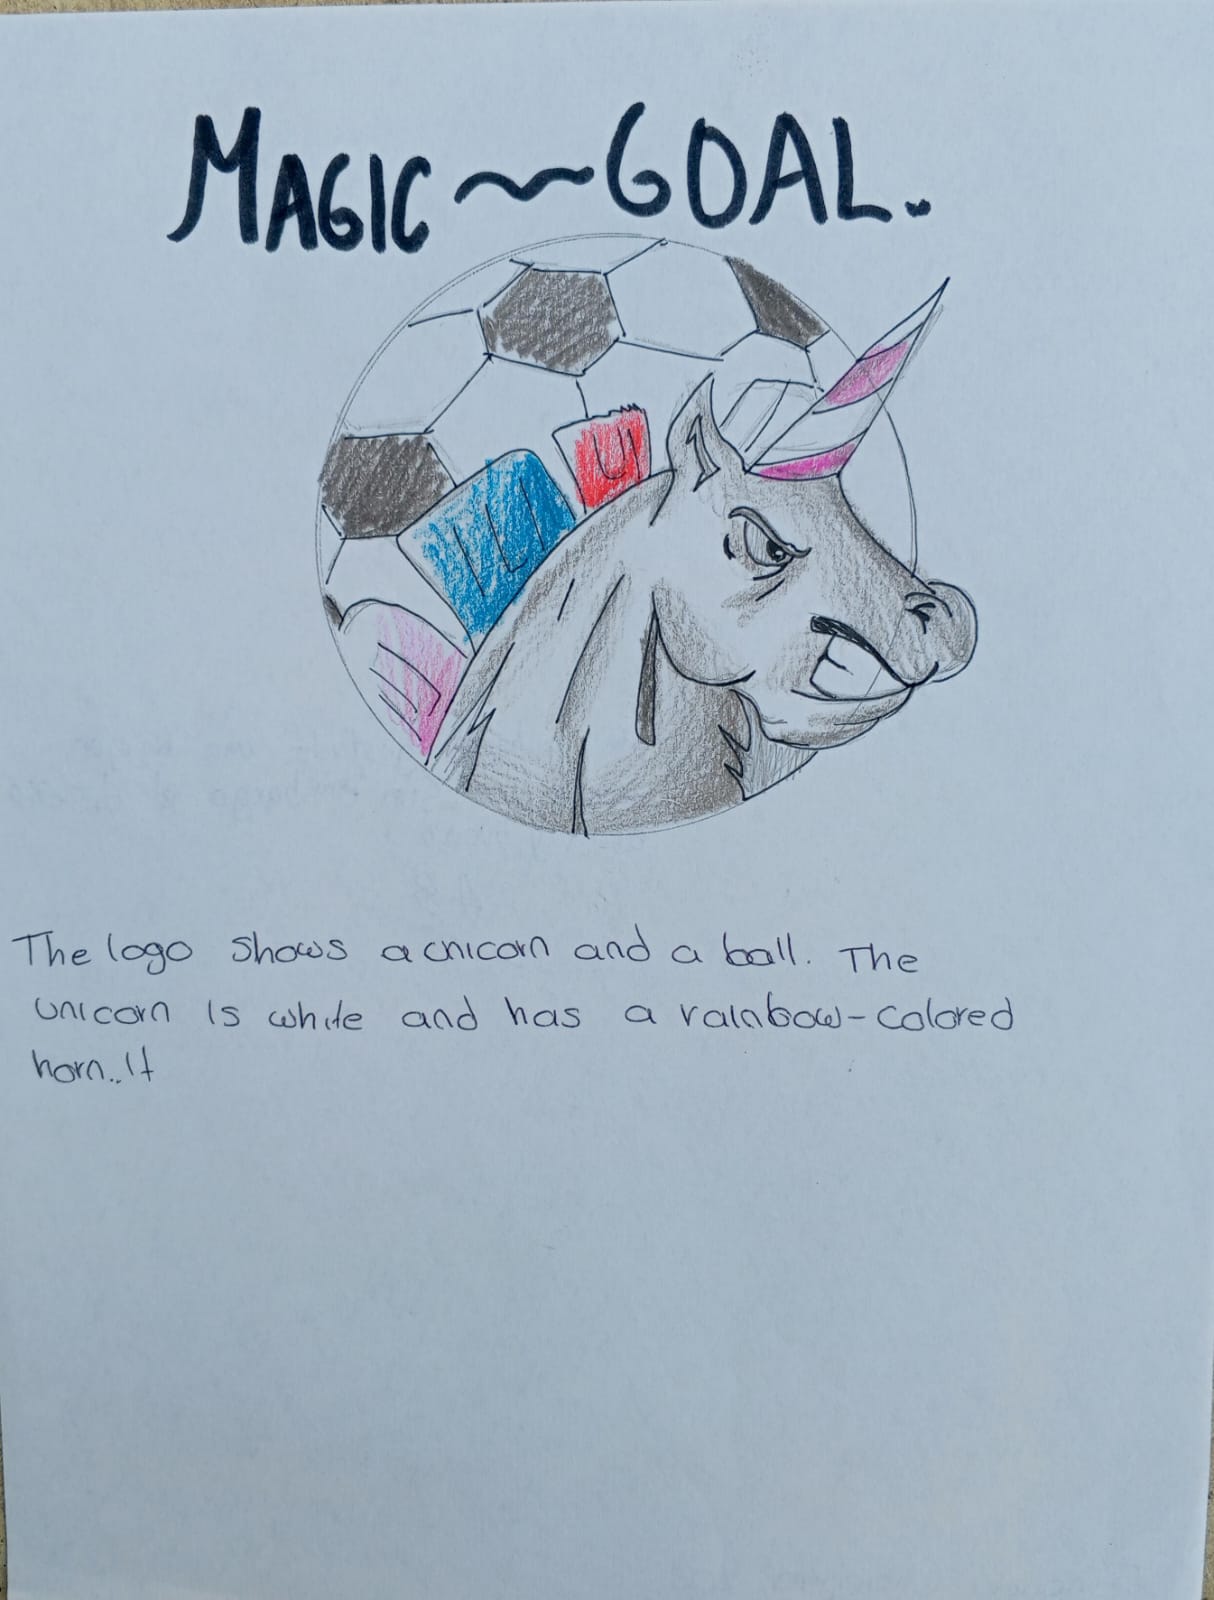 MAGIC ~ GOAL.
The logo shows a cnicorn and a ball. The
unicorn is white and has a rainbow-colored
horn.. It